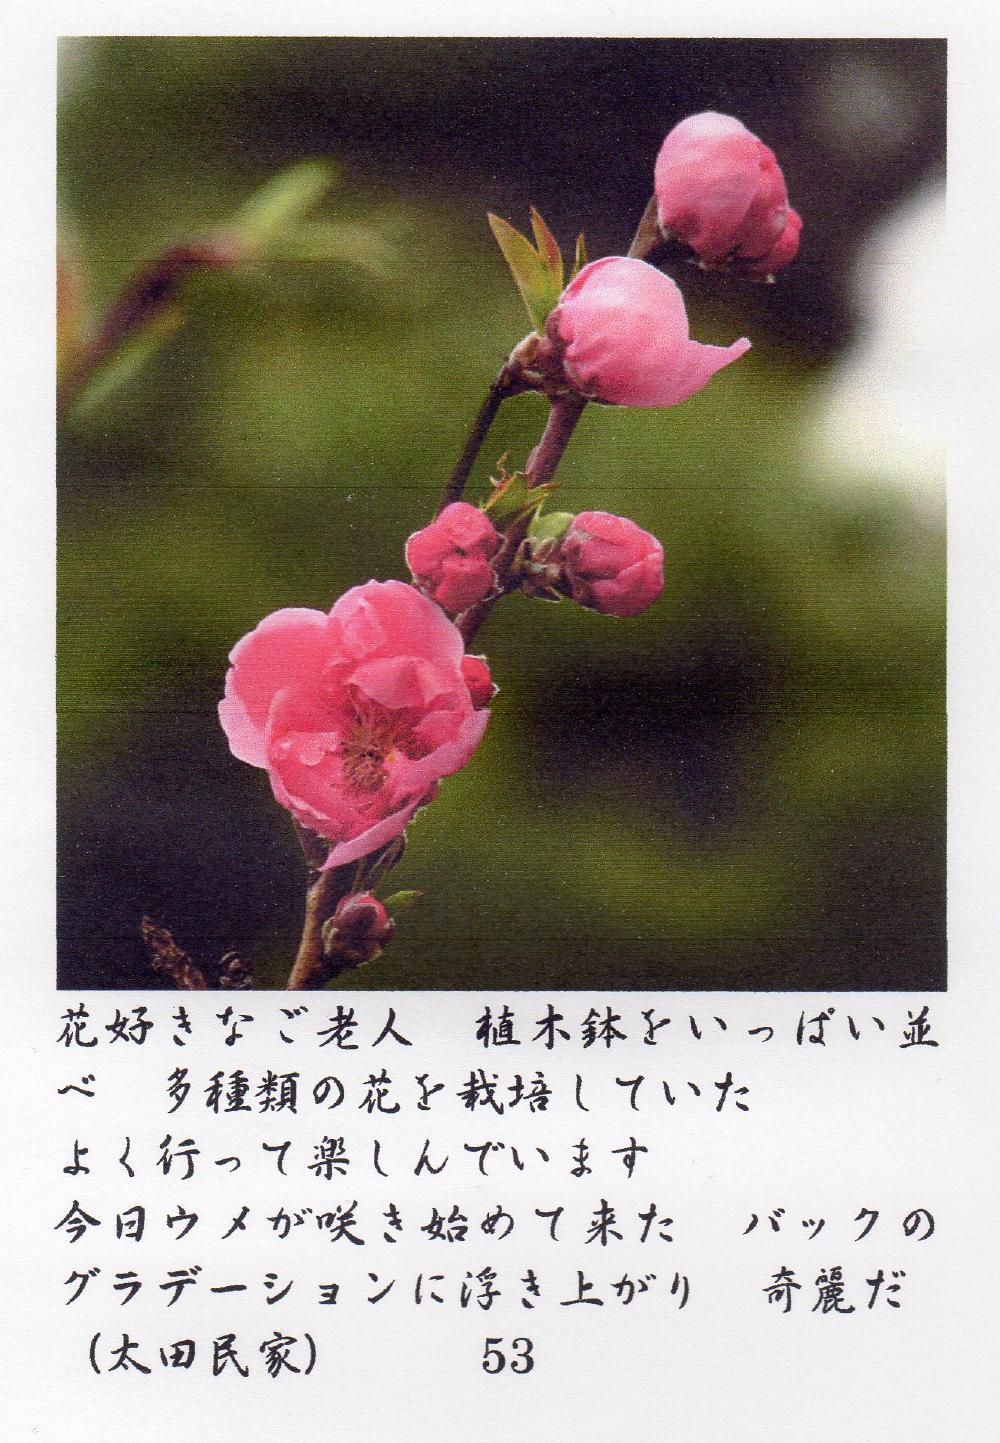 花好きなご老人　植木鉢をいっぱい並
べ　多種類の花を栽培していた
よく行って楽しんでいます
今日ウメが咲き始めて来た　バックの
グラデーションに浮き上がり　奇麗だ
（太田民家）　　　53